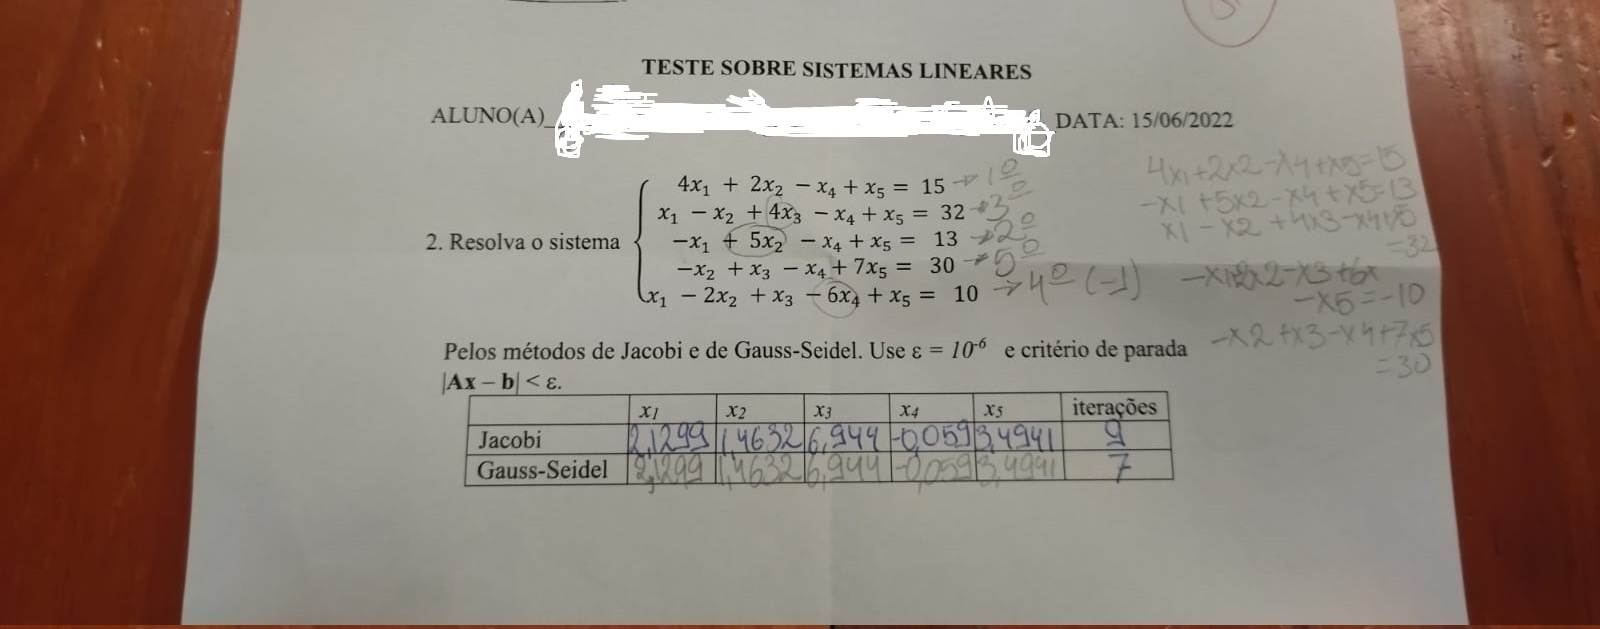 TESTE SOBRE SISTEMAS LINEARES
ALUNO(A)_ DATA: 15/06/2022
4x₁ + 2x₂ − x₄ + x₅ = 15 → 1º
x₁ − x₂ + 4x₃ − x₄ + x₅ = 32 → 3º
2. Resolva o sistema −x₁ + 5x₂ − x₄ + x₅ = 13 → 2º
−x₂ + x₃ − x₄ + 7x₅ = 30 → 5º
x₁ − 2x₂ + x₃ − 6x₄ + x₅ = 10 → 4º (-1)
4x1+2x2-x4+x5=15
-x1+5x2-x4+x5=13
x1-x2+4x3-x4+x5
=32
-x1+2x2-x3+6x
-x5=-10
-x2+x3-x4+7x5
=30
Pelos métodos de Jacobi e de Gauss-Seidel. Use ε = 10⁻⁶ e critério de parada
|Ax – b| < ε.
x₁ x₂ x₃ x₄ x₅ iterações
Jacobi 2,1299 1,4632 6,944 -0,059 3,4941 9
Gauss-Seidel 2,1299 1,4632 6,944 -0,059 3,4941 7